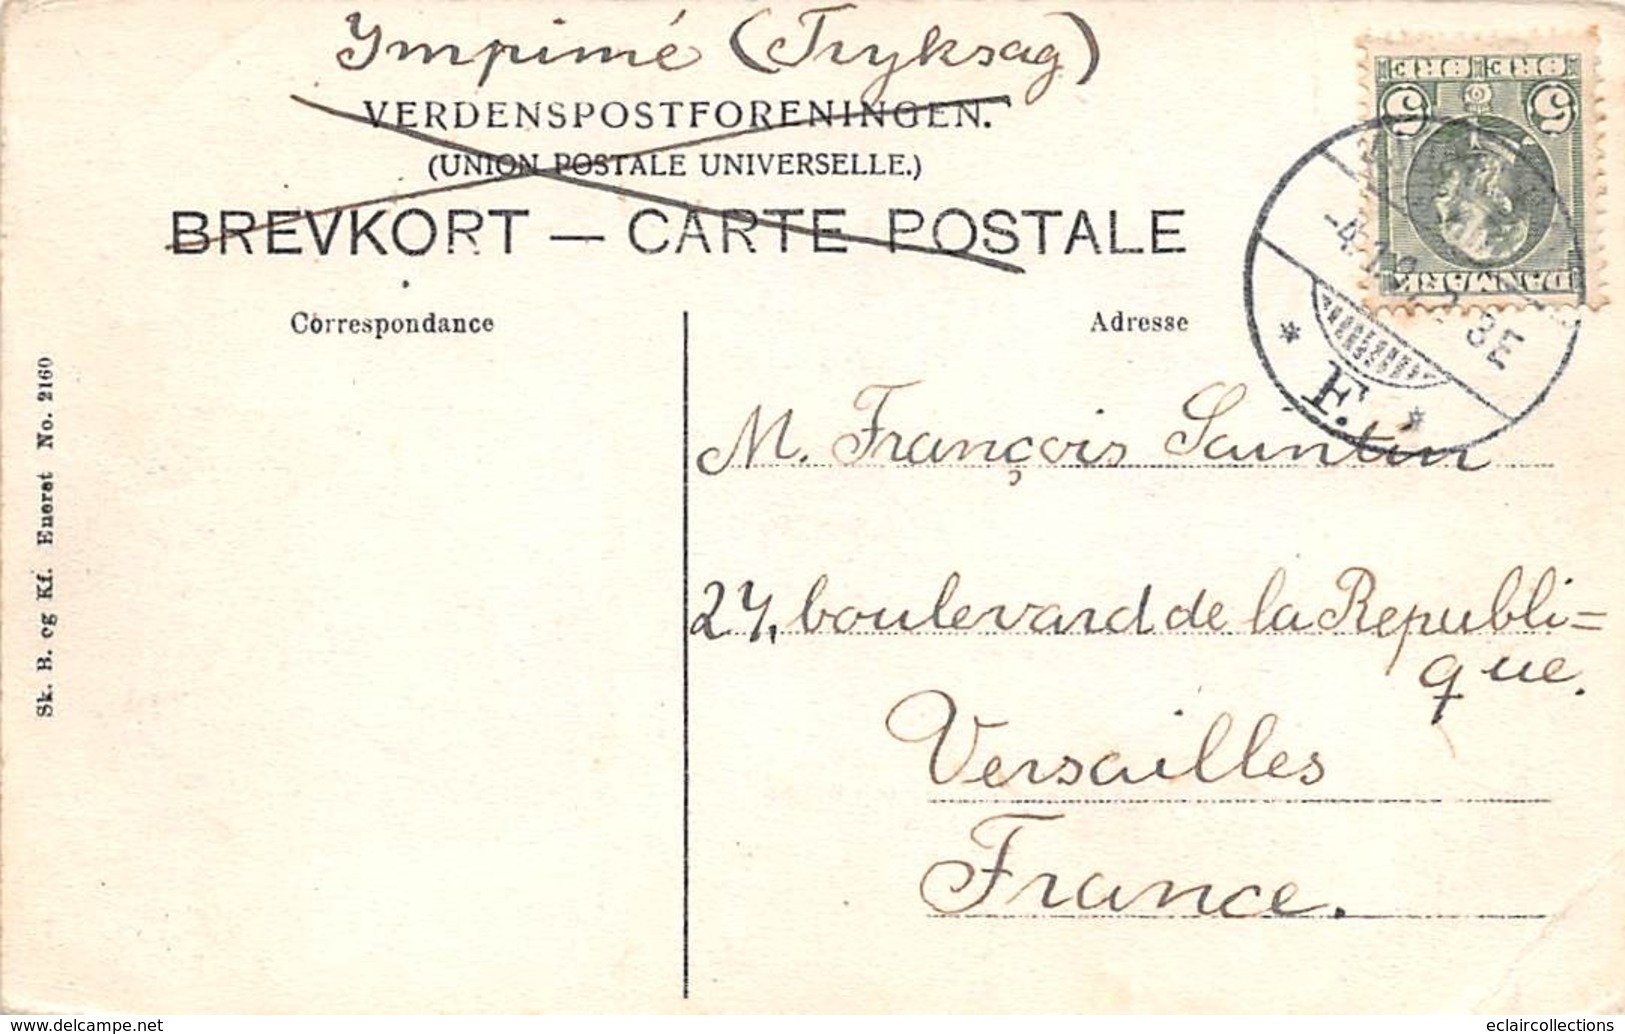 Ympimé (Tryksag)
VERDENSPOSTFORENINGEN.
(UNION POSTALE UNIVERSELLE.)
BREVKORT — CARTE POSTALE
Correspondance
Adresse
5 5
DANMARK
3E
F.
M. François Saintin
27, boulevard de la Republi=
que.
Versailles
France.
Sk. B. og Kf. Eneret No. 2160
www.delcampe.net
eclaircollections